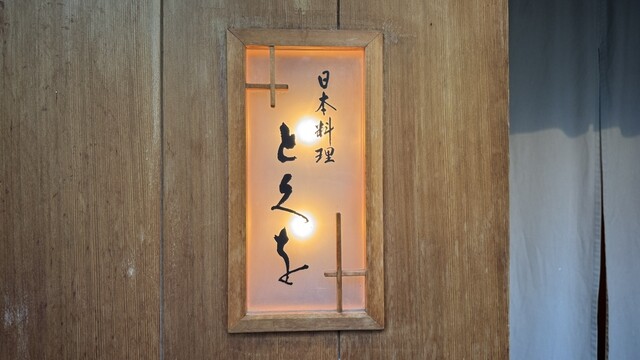 日本料理
とくを